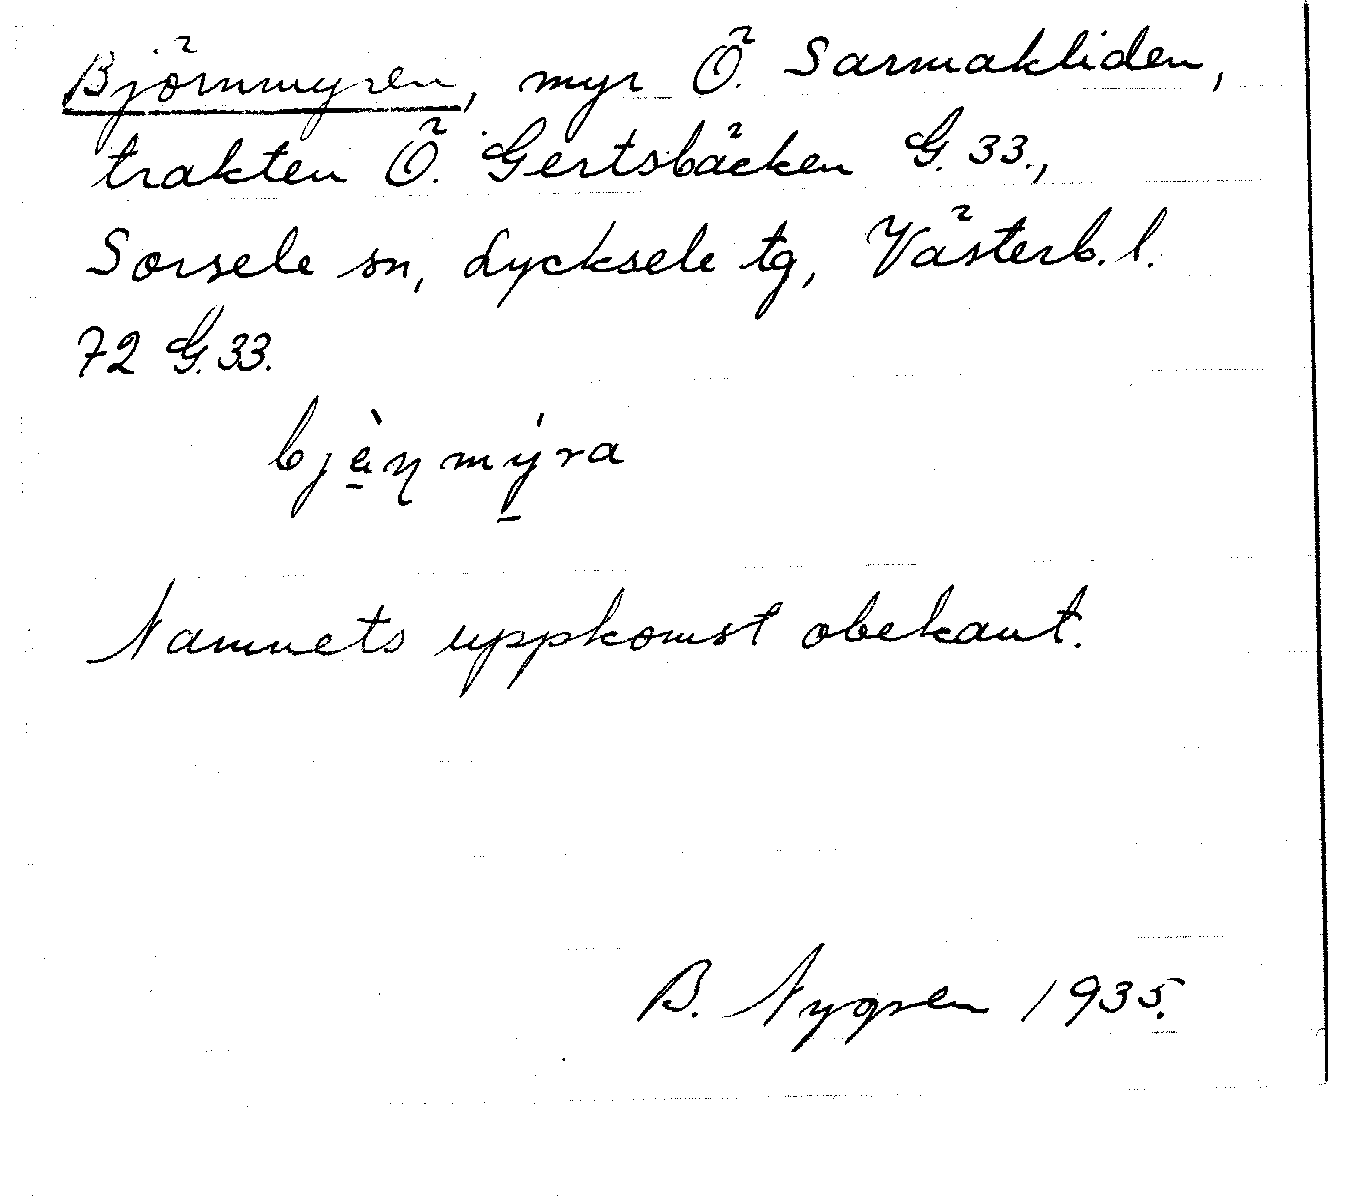 Björnmyren, myr Ö. Sarmakliden,
trakten Ö. Gertsbäcken G. 33.,
Sorsele sn, Lycksele tg, Västerb. l.
72 G. 33.
bjàŋmýra
Namnets uppkomst obekant.
B. Nygren 1935.